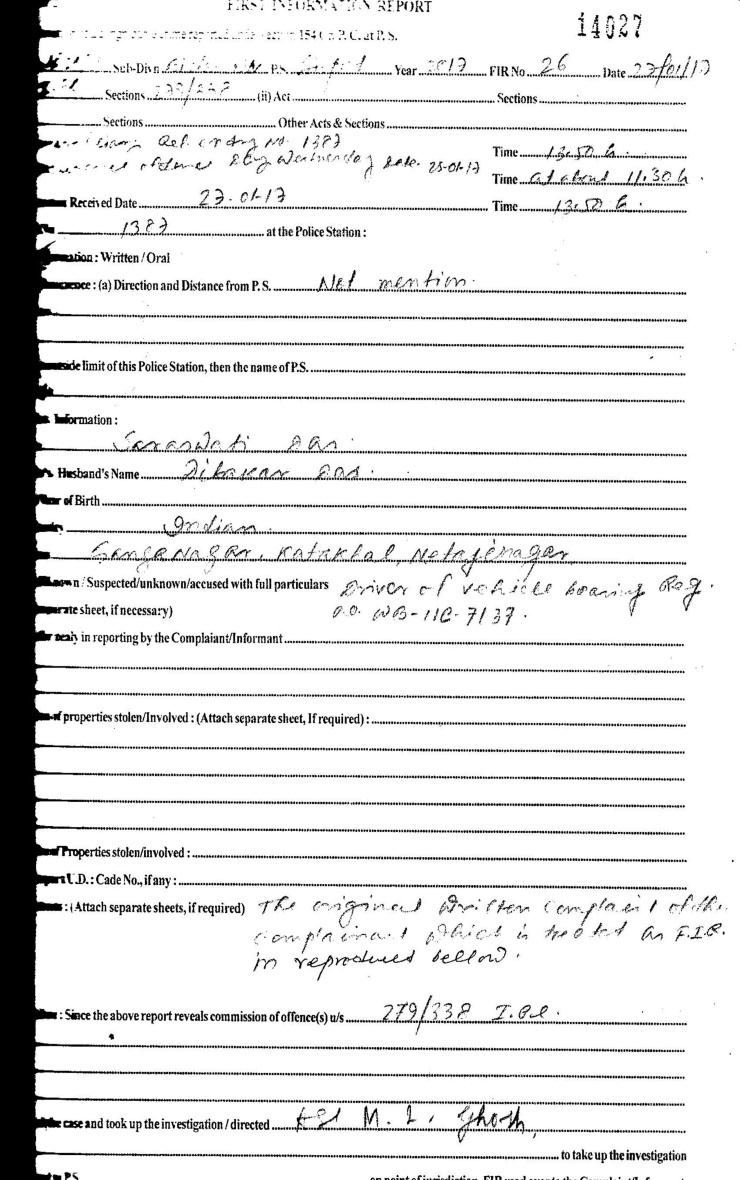 FIRST INFORMATION REPORT
14027
154 Cr. P.C. at P.S.
Sub-Divn P.S. Year 2017 FIR No 26 Date 27/01/17
Sections 279/338 (ii) Act Sections
Sections Other Acts & Sections
Ref. entry no. 1387
Time 13.50 h.
Day Wednesday Date. 25-01-17
Time at about 11.30 h.
Received Date 27-01-17 Time 13.50 h.
1387 at the Police Station :
: Written / Oral
: (a) Direction and Distance from P. S. Not mention.
limit of this Police Station, then the name of P.S.
Information :
Saraswati Das.
Husband's Name Dibakar Das.
of Birth
Indian.
Ganganagar, Katakhal, Netajinagar
/ Suspected/unknown/accused with full particulars Driver of vehicle bearing Reg.
sheet, if necessary) no. WB-11C-7137.
in reporting by the Complaiant/Informant
properties stolen/Involved : (Attach separate sheet, If required) :
Properties stolen/involved :
U.D. : Cade No., if any :
: (Attach separate sheets, if required) The original written complaint of the
complainant which is treated as F.I.R.
in reproduced bellow.
: Since the above report reveals commission of offence(s) u/s 279/338 I.P.C.
case and took up the investigation / directed ASI M. L. Ghosh,
to take up the investigation
P.S.